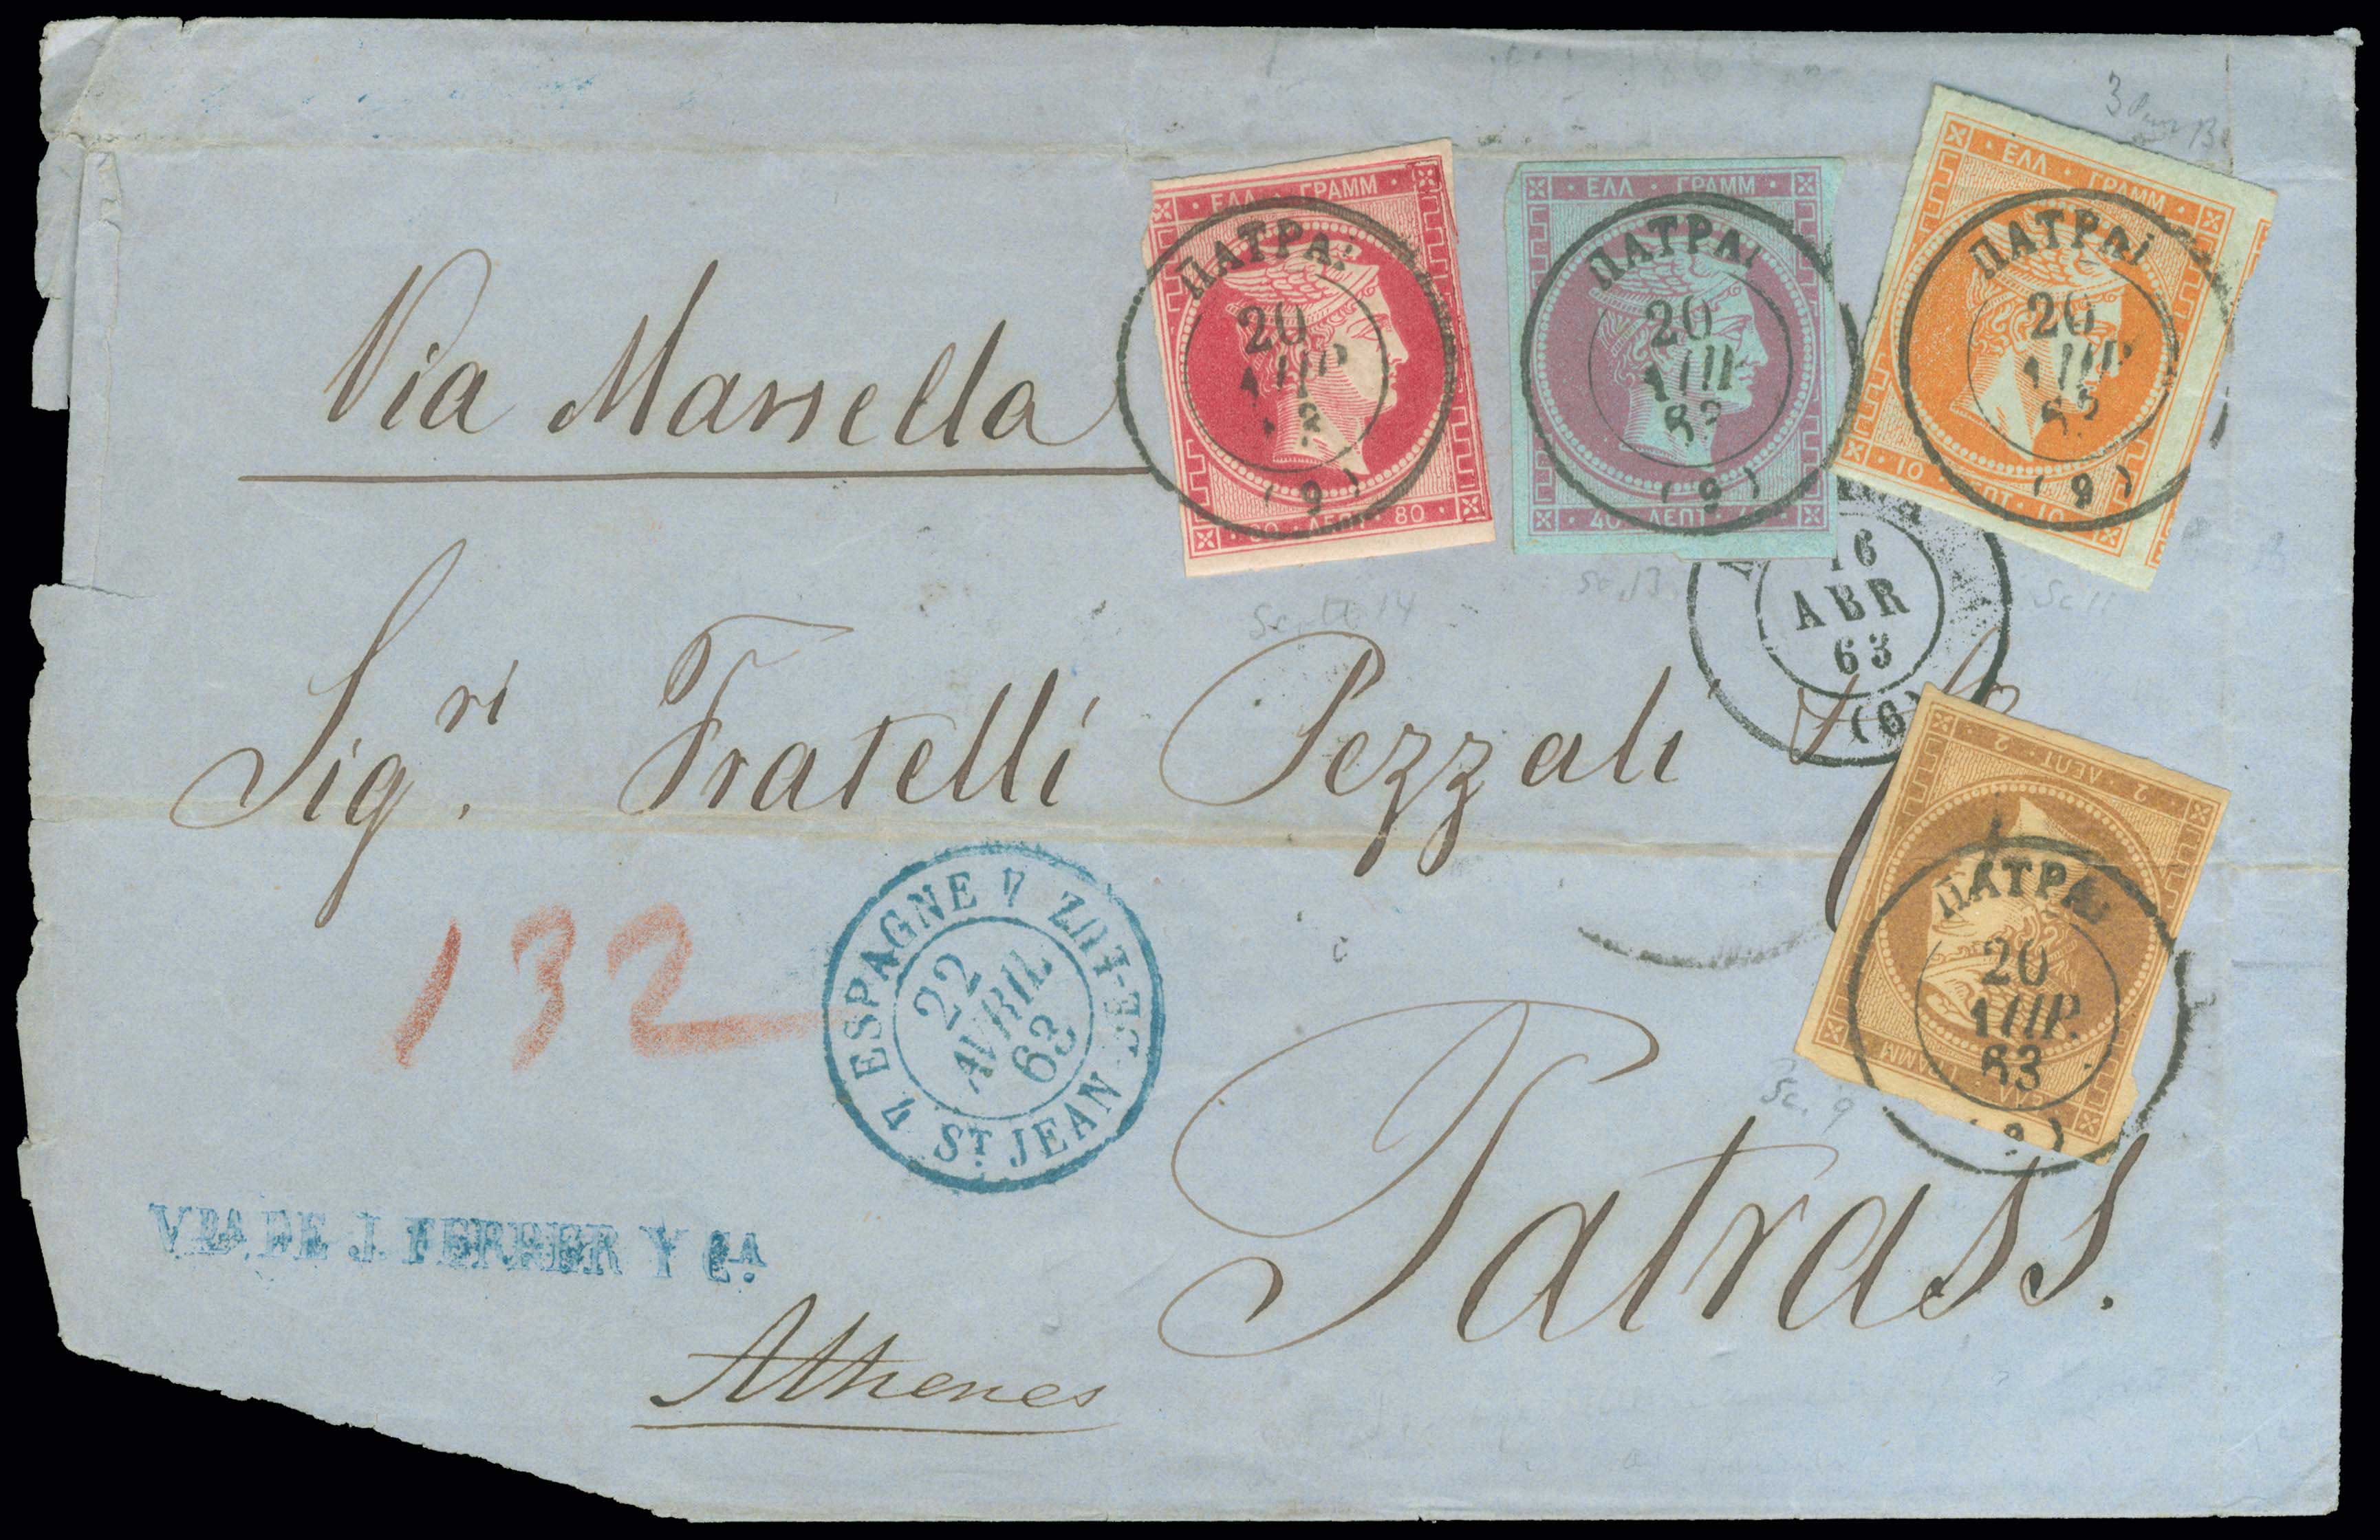 Via Marsella
Sigri. Fratelli Pezzali
132
Patrass.
Athenes
VDA DE J. FERRER Y CIA
4 ESPAGNE 4
22
AVRIL
63
ST JEAN-DE-LUZ
16
ABR
63
(6)
ΕΛΛ · ΓΡΑΜΜ
80 · ΛΕΠΤ · 80
ΠΑΤΡΑΙ
20
ΑΠΡ
(9)
ΕΛΛ · ΓΡΑΜΜ
40 · ΛΕΠΤ ·
ΠΑΤΡΑΙ
20
ΑΠΡ
63
(9)
ΕΛΛ · ΓΡΑΜΜ
10 · ΛΕΠΤ · 10
ΠΑΤΡΑΙ
20
ΑΠΡ
63
(9)
2 · ΛΕΠΤ · 2
ΕΛΛ · ΓΡΑΜΜ
ΠΑΤΡΑΙ
20
ΑΠΡ.
63
(9)
Sc. 13
Sc 11
Sc. 9